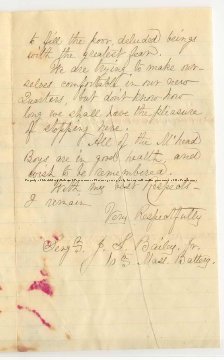 to fill the poor, deluded beings
with the greatest fear.
We are trying to make our-
selves comfortable in our new
Quarters, but don't know how
long we shall have the pleasure
of stopping here.
All of the M'head
Boys are in good health, and
wish to be remembered.
With my best respects
I remain
Very Respectfully
Serg't J. S. Bailey, Jr.
Mass. Battery.